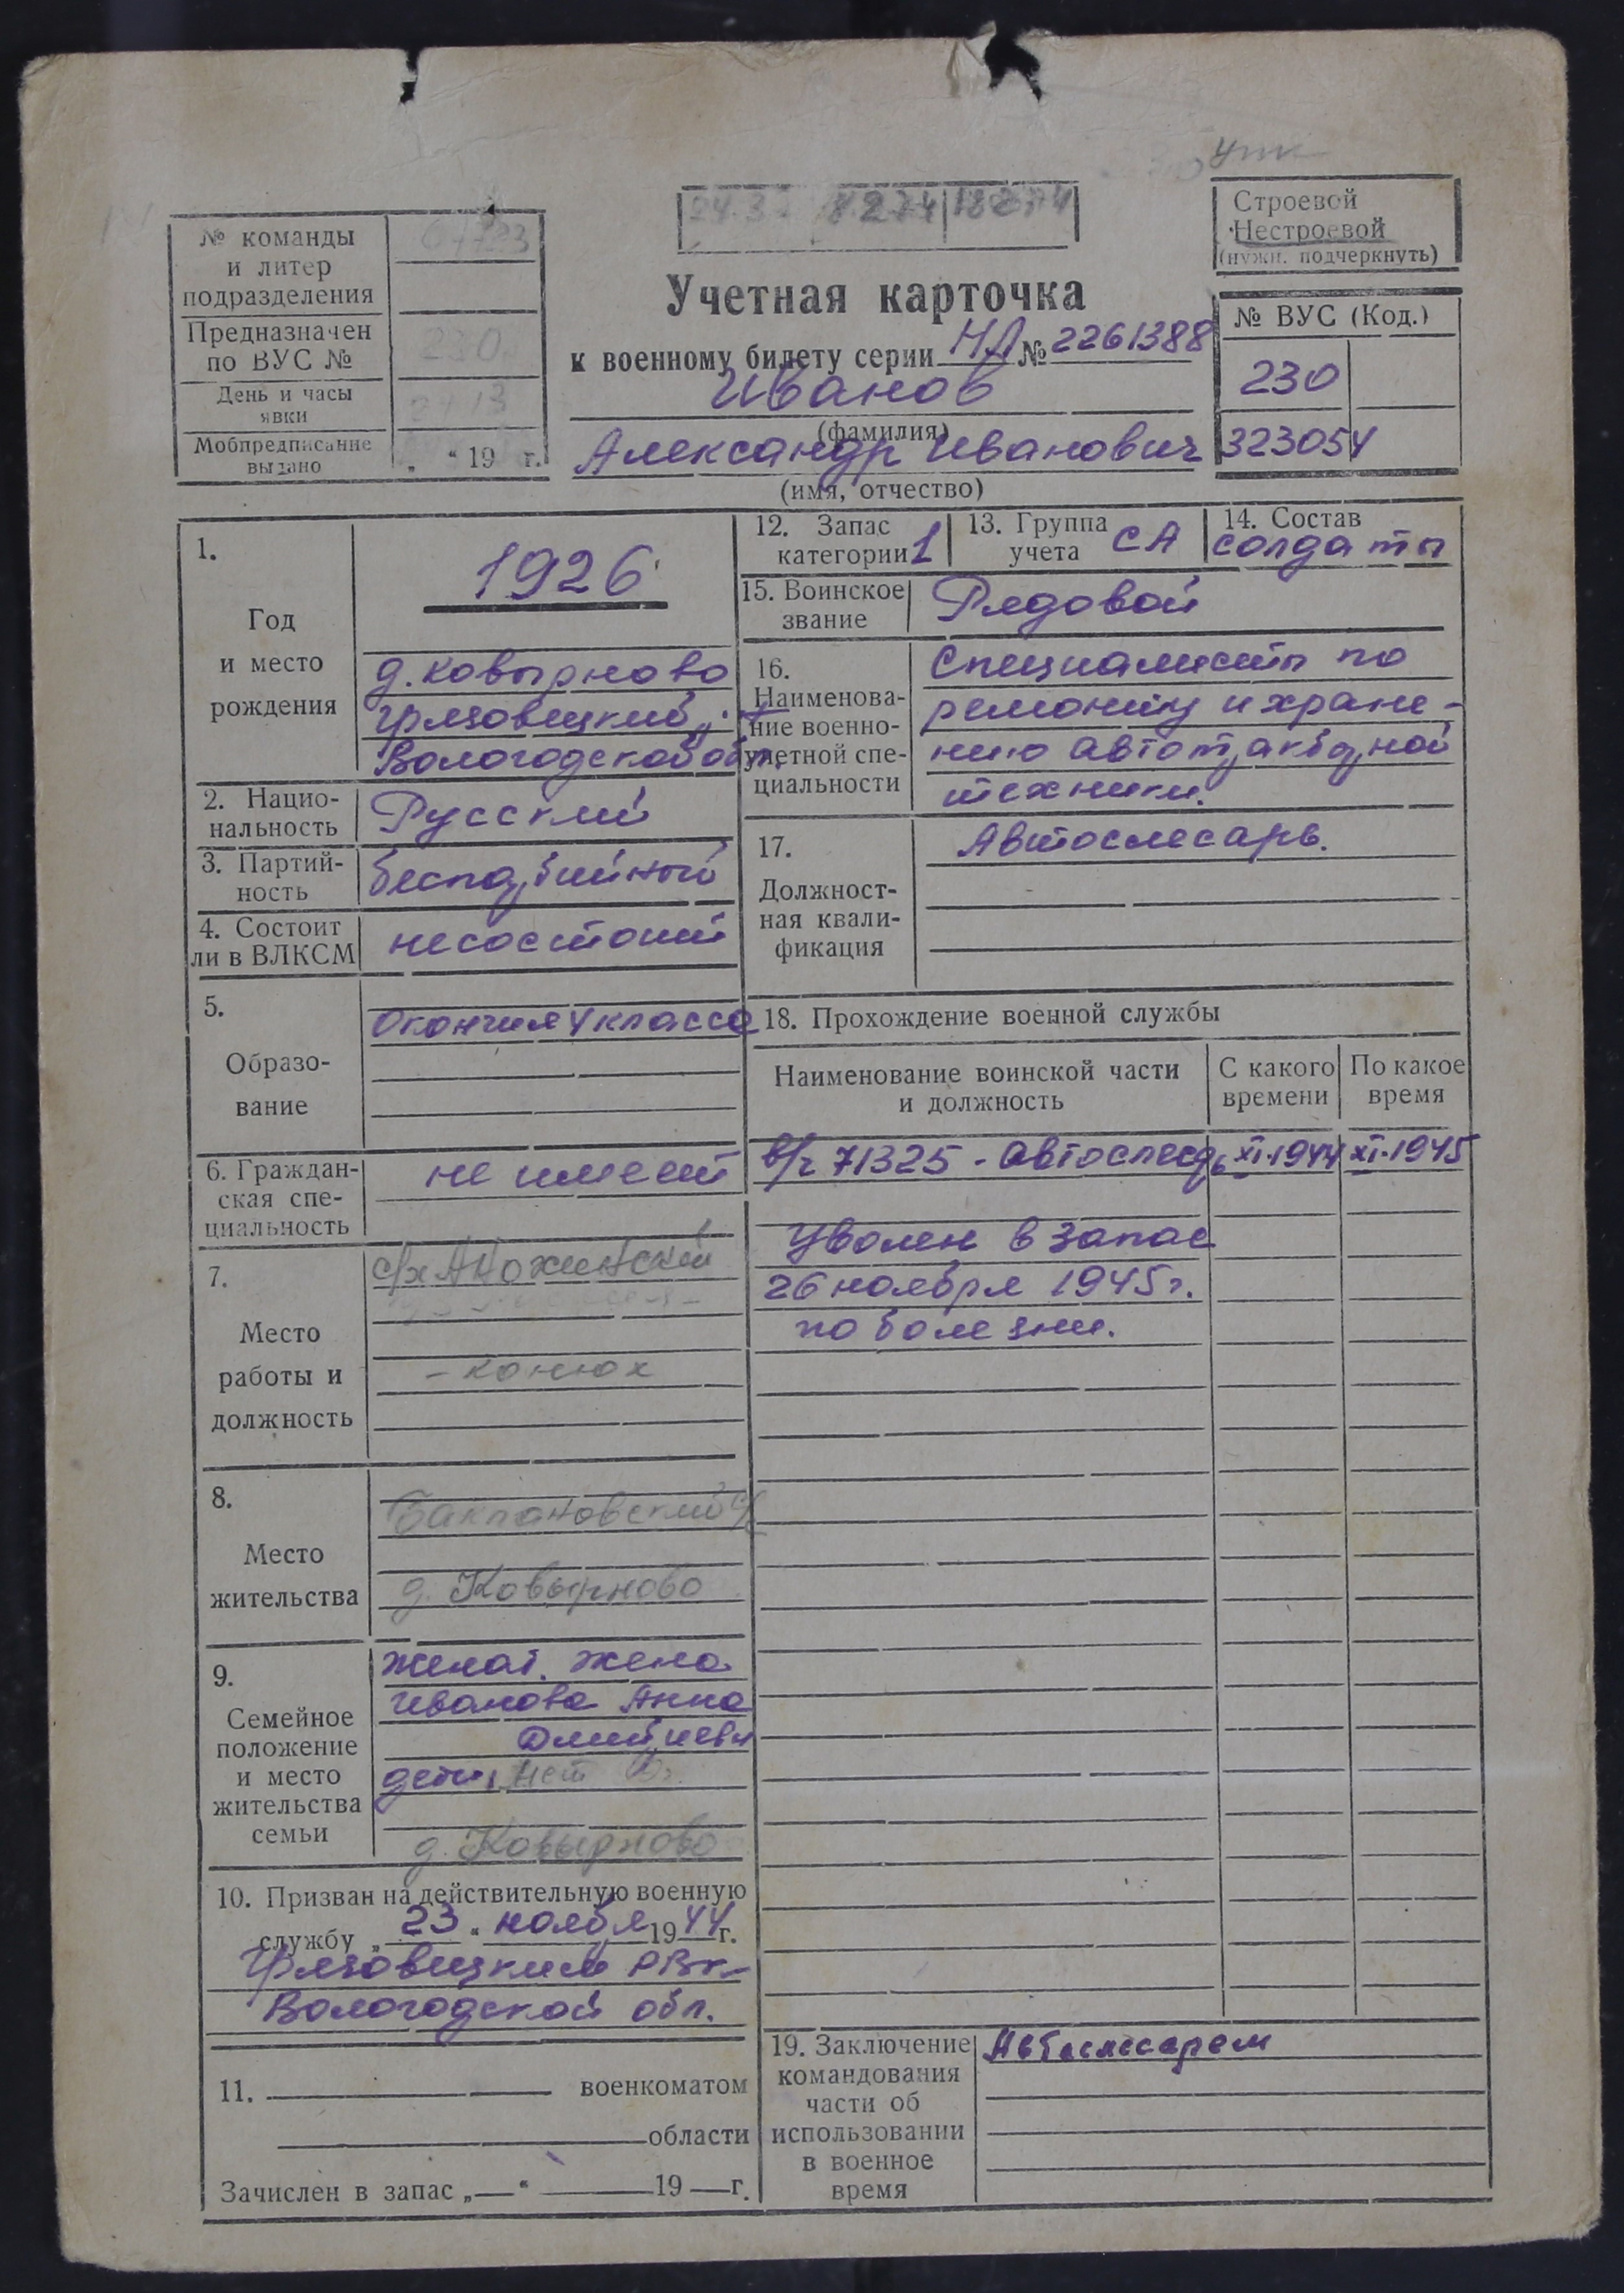 № команды
и литер
подразделения
Предназначен
по ВУС №
230
День и часы
явки
Мобпредписание
выдано
„ “ 19 г.
8274
Учетная карточка
к военному билету серии НЛ № 2261388
Иванов
(фамилия)
Александр Иванович
(имя, отчество)
Строевой
Нестроевой
(нужн. подчеркнуть)
№ ВУС (Код.)
230
323054
1.
Год
и место
рождения
1926
д. Ковырново
Грязовецкий
Вологодской обл.
2. Нацио-
нальность
Русский
3. Партий-
ность
беспартийный
4. Состоит
ли в ВЛКСМ
несостоит
5.
Образо-
вание
Окончил 4 класса
6. Граждан-
ская спе-
циальность
не имеет
7.
Место
работы и
должность
с/х
- конюх
8.
Место
жительства
Баклановский с/с
д. Ковырново
9.
Семейное
положение
и место
жительства
семьи
Женат. жена
Иванова Анна
Дмитриевн
дети, нет
д. Ковырново
10. Призван на действительную военную
службу „ 23 “ ноября 1944 г.
Грязовецким РВК
Вологодской обл.
11. военкоматом
области
Зачислен в запас „ “ 19 г.
12. Запас
категории 1
13. Группа
учета СА
14. Состав
солдаты
15. Воинское
звание
Рядовой
16.
Наименова-
ние военно-
учетной спе-
циальности
Специалисты по
ремонту и хране-
нию автотракторной
техники.
17.
Должност-
ная квали-
фикация
Автослесарь.
18. Прохождение военной службы
Наименование воинской части
и должность
С какого
времени
По какое
время
в/ч 71325 - автослесарь XI.1944 XI.1945
Уволен в запас
26 ноября 1945 г.
по болезни.
19. Заключение
командования
части об
использовании
в военное
время
Автослесарем